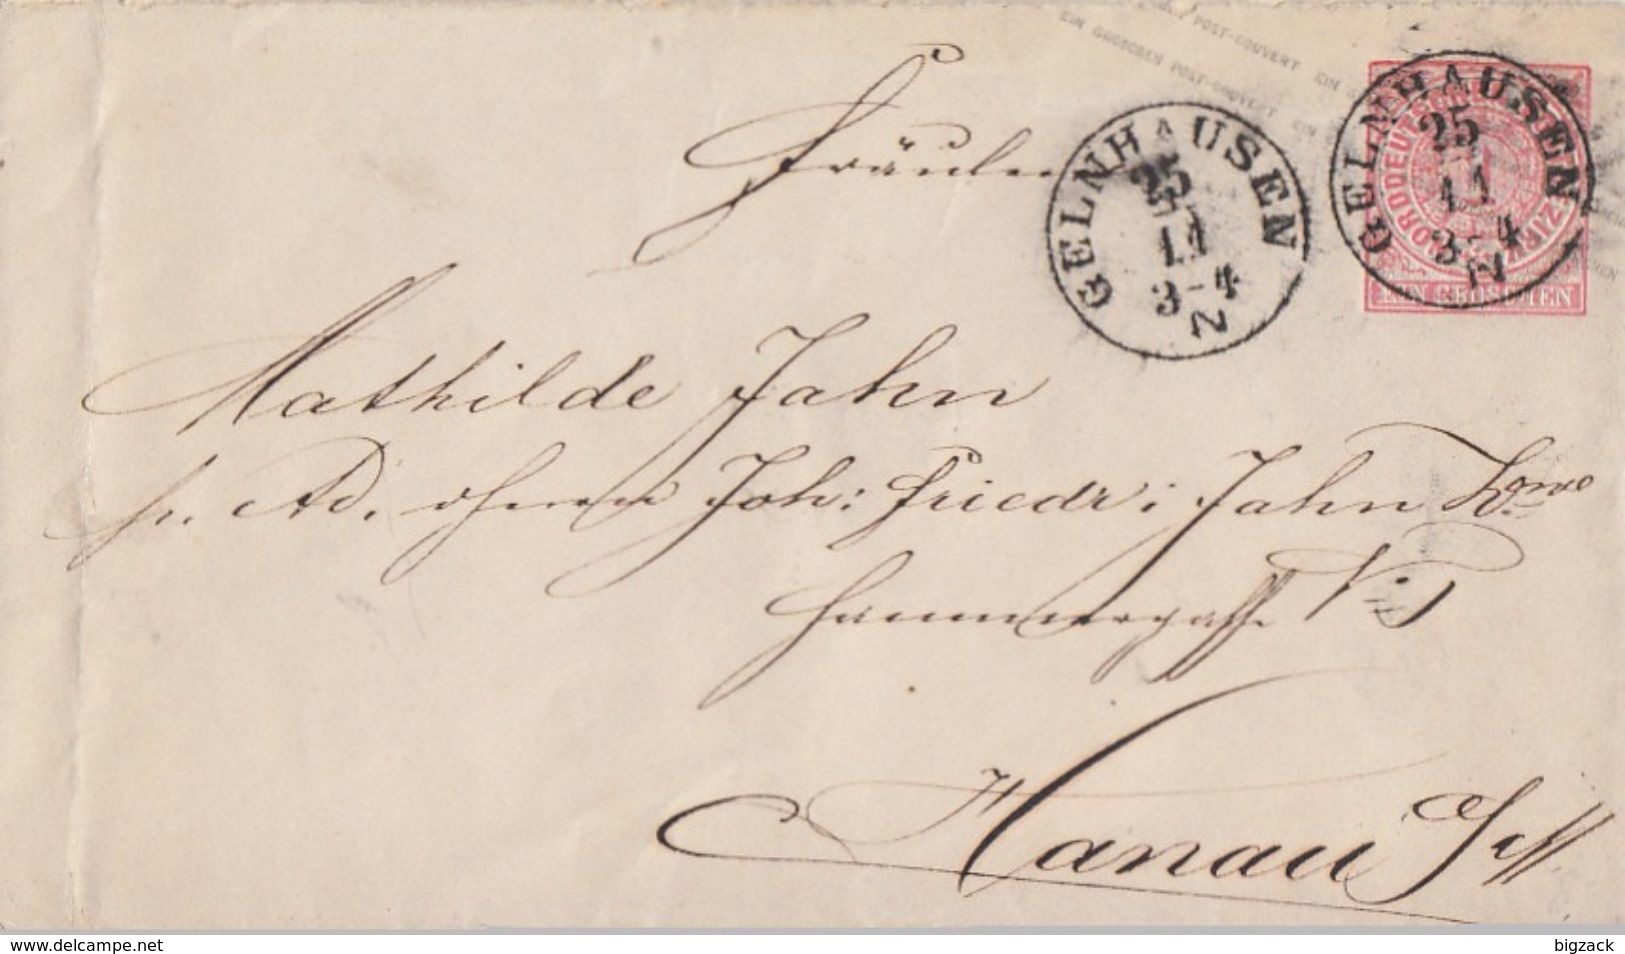 POST-COUVERT EIN
EIN GROSCHEN POST-COUVERT EIN
GELNHAUSEN
25
11
3-4
N
GELNHAUSEN
25
11
3-4
N
NORDDEUTSCHER
1
EIN GROSCHEN
Fräulein
Mathilde Jahn
Ad. Herrn Joh: Friedr: Jahn
Hammergasse No
Hanau
www.delcampe.net
bigzack